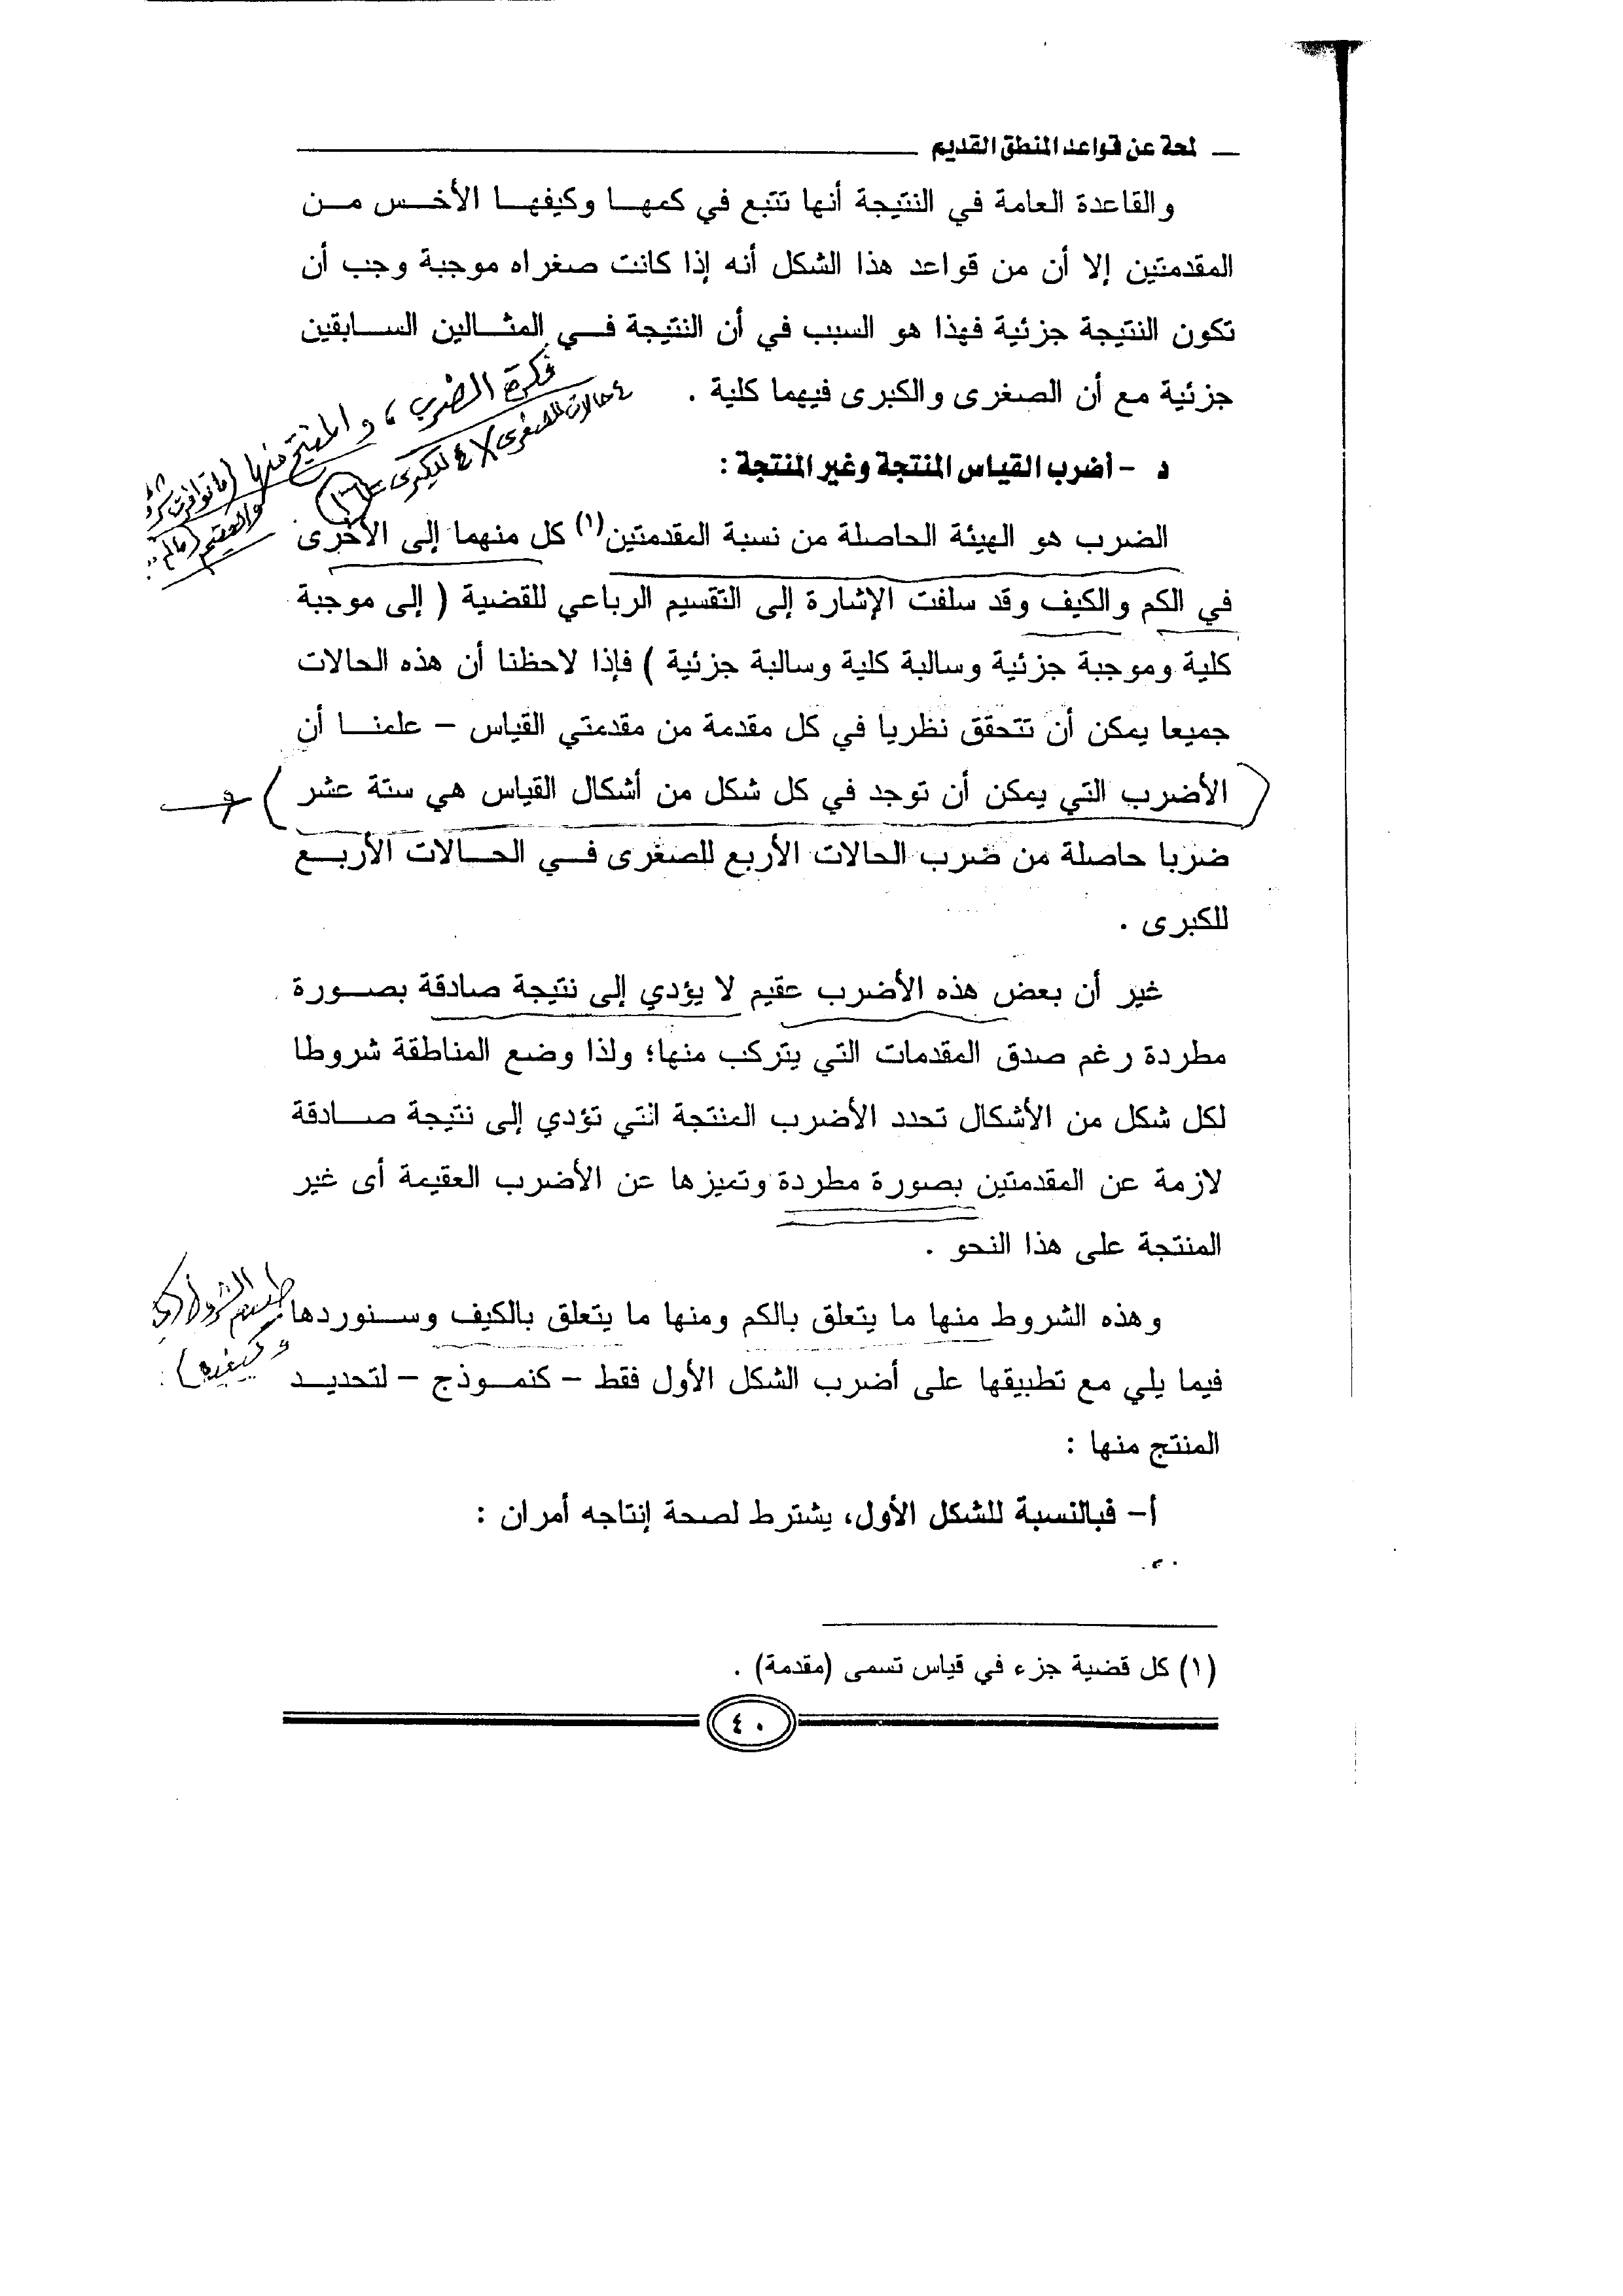 لمحة عن قواعد المنطق القديم
والقاعدة العامة في النتيجة أنها تتبع في كمها وكيفها الأخس من
المقدمتين إلا أن من قواعد هذا الشكل أنه إذا كانت صغراه موجبة وجب أن
تكون النتيجة جزئية فهذا هو السبب في أن النتيجة في المثالين السابقين
جزئية مع أن الصغرى والكبرى فيهما كلية .
فكرة الضرب، والمنتج منها (ما توافرت
٤ حالات للصغرى × ٤ للكبرى = ١٦
والعقيم (مالم
د - أضرب القياس المنتجة وغير المنتجة :
الضرب هو الهيئة الحاصلة من نسبة المقدمتين(١) كل منهما إلى الأخرى
في الكم والكيف وقد سلفت الإشارة إلى التقسيم الرباعي للقضية ( إلى موجبة
كلية وموجبة جزئية وسالبة كلية وسالبة جزئية ) فإذا لاحظنا أن هذه الحالات
جميعا يمكن أن تتحقق نظريا في كل مقدمة من مقدمتي القياس – علمنا أن
الأضرب التي يمكن أن توجد في كل شكل من أشكال القياس هي ستة عشر
ضربا حاصلة من ضرب الحالات الأربع للصغرى في الحالات الأربع
للكبرى .
غير أن بعض هذه الأضرب عقيم لا يؤدي إلى نتيجة صادقة بصورة
مطردة رغم صدق المقدمات التي يتركب منها؛ ولذا وضع المناطقة شروطا
لكل شكل من الأشكال تحدد الأضرب المنتجة التي تؤدي إلى نتيجة صادقة
لازمة عن المقدمتين بصورة مطردة وتميزها عن الأضرب العقيمة أى غير
المنتجة على هذا النحو .
وهذه الشروط منها ما يتعلق بالكم ومنها ما يتعلق بالكيف وسنوردها
وكيفية)
فيما يلي مع تطبيقها على أضرب الشكل الأول فقط – كنموذج – لتحديد
المنتج منها :
أ- فبالنسبة للشكل الأول، يشترط لصحة إنتاجه أمران :
(١) كل قضية جزء في قياس تسمى (مقدمة) .
٤٠